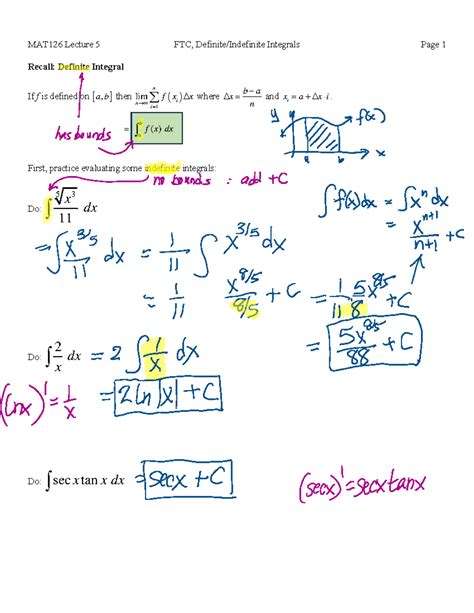 MAT126 Lecture 5 FTC, Definite/Indefinite Integrals Page 1
Recall: Definite Integral
If f is defined on [a, b] then lim_{n→∞} ∑_{i=1}^{n} f(x_i)Δx where Δx = (b − a)/n and x_i = a + Δx · i.
has bounds = ∫_a^b f(x) dx
y f(x)
a b x
First, practice evaluating some indefinite integrals:
no bounds : add +C
Do: ∫ ⁵√(x³)/11 dx
∫f(x)dx = ∫xⁿdx
= x^(n+1)/(n+1) + C
= ∫ x^(3/5)/11 dx = 1/11 ∫ x^(3/5) dx
= 1/11 x^(8/5)/(8/5) + C = 1/11 5x^(8/5)/8 + C
= 5x^(8/5)/88 + C
Do: ∫ 2/x dx = 2 ∫ 1/x dx
(lnx)' = 1/x = 2ln|x| + C
Do: ∫ sec x tan x dx = secx + C
(secx)' = secxtanx